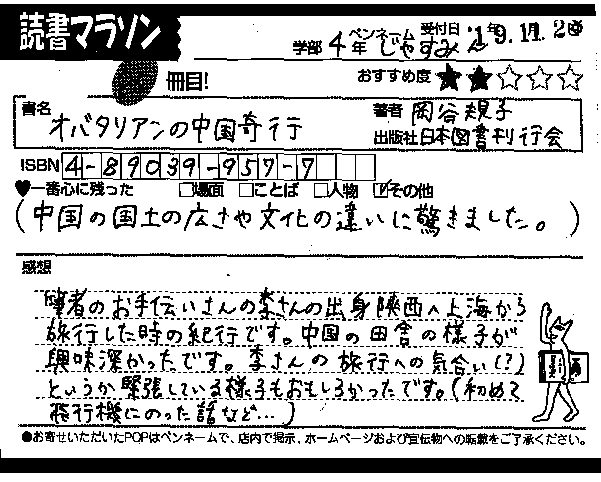 読書マラソン
学部 4年 ペンネーム じゃすみん 受付日
冊目!
おすすめ度 ★★☆☆☆
書名 オバタリアンの中国奇行
著者 岡谷規子
出版社 日本図書刊行会
ISBN 4-89039-957-7
♥一番心に残った □場面 □ことば □人物 ☑その他
(中国の国土の広さや文化の違いに驚きました。)
感想
筆者のお手伝いさんの李さんの出身陝西へ上海から
旅行した時の紀行です。中国の田舎の様子が
興味深かったです。李さんの旅行への気合い(?)
というか緊張している様子もおもしろかったです。(初めて
飛行機にのった話など…)
●お寄せいただいたPOPはペンネームで、店内で掲示、ホームページおよび宣伝物への転載をご了承ください。